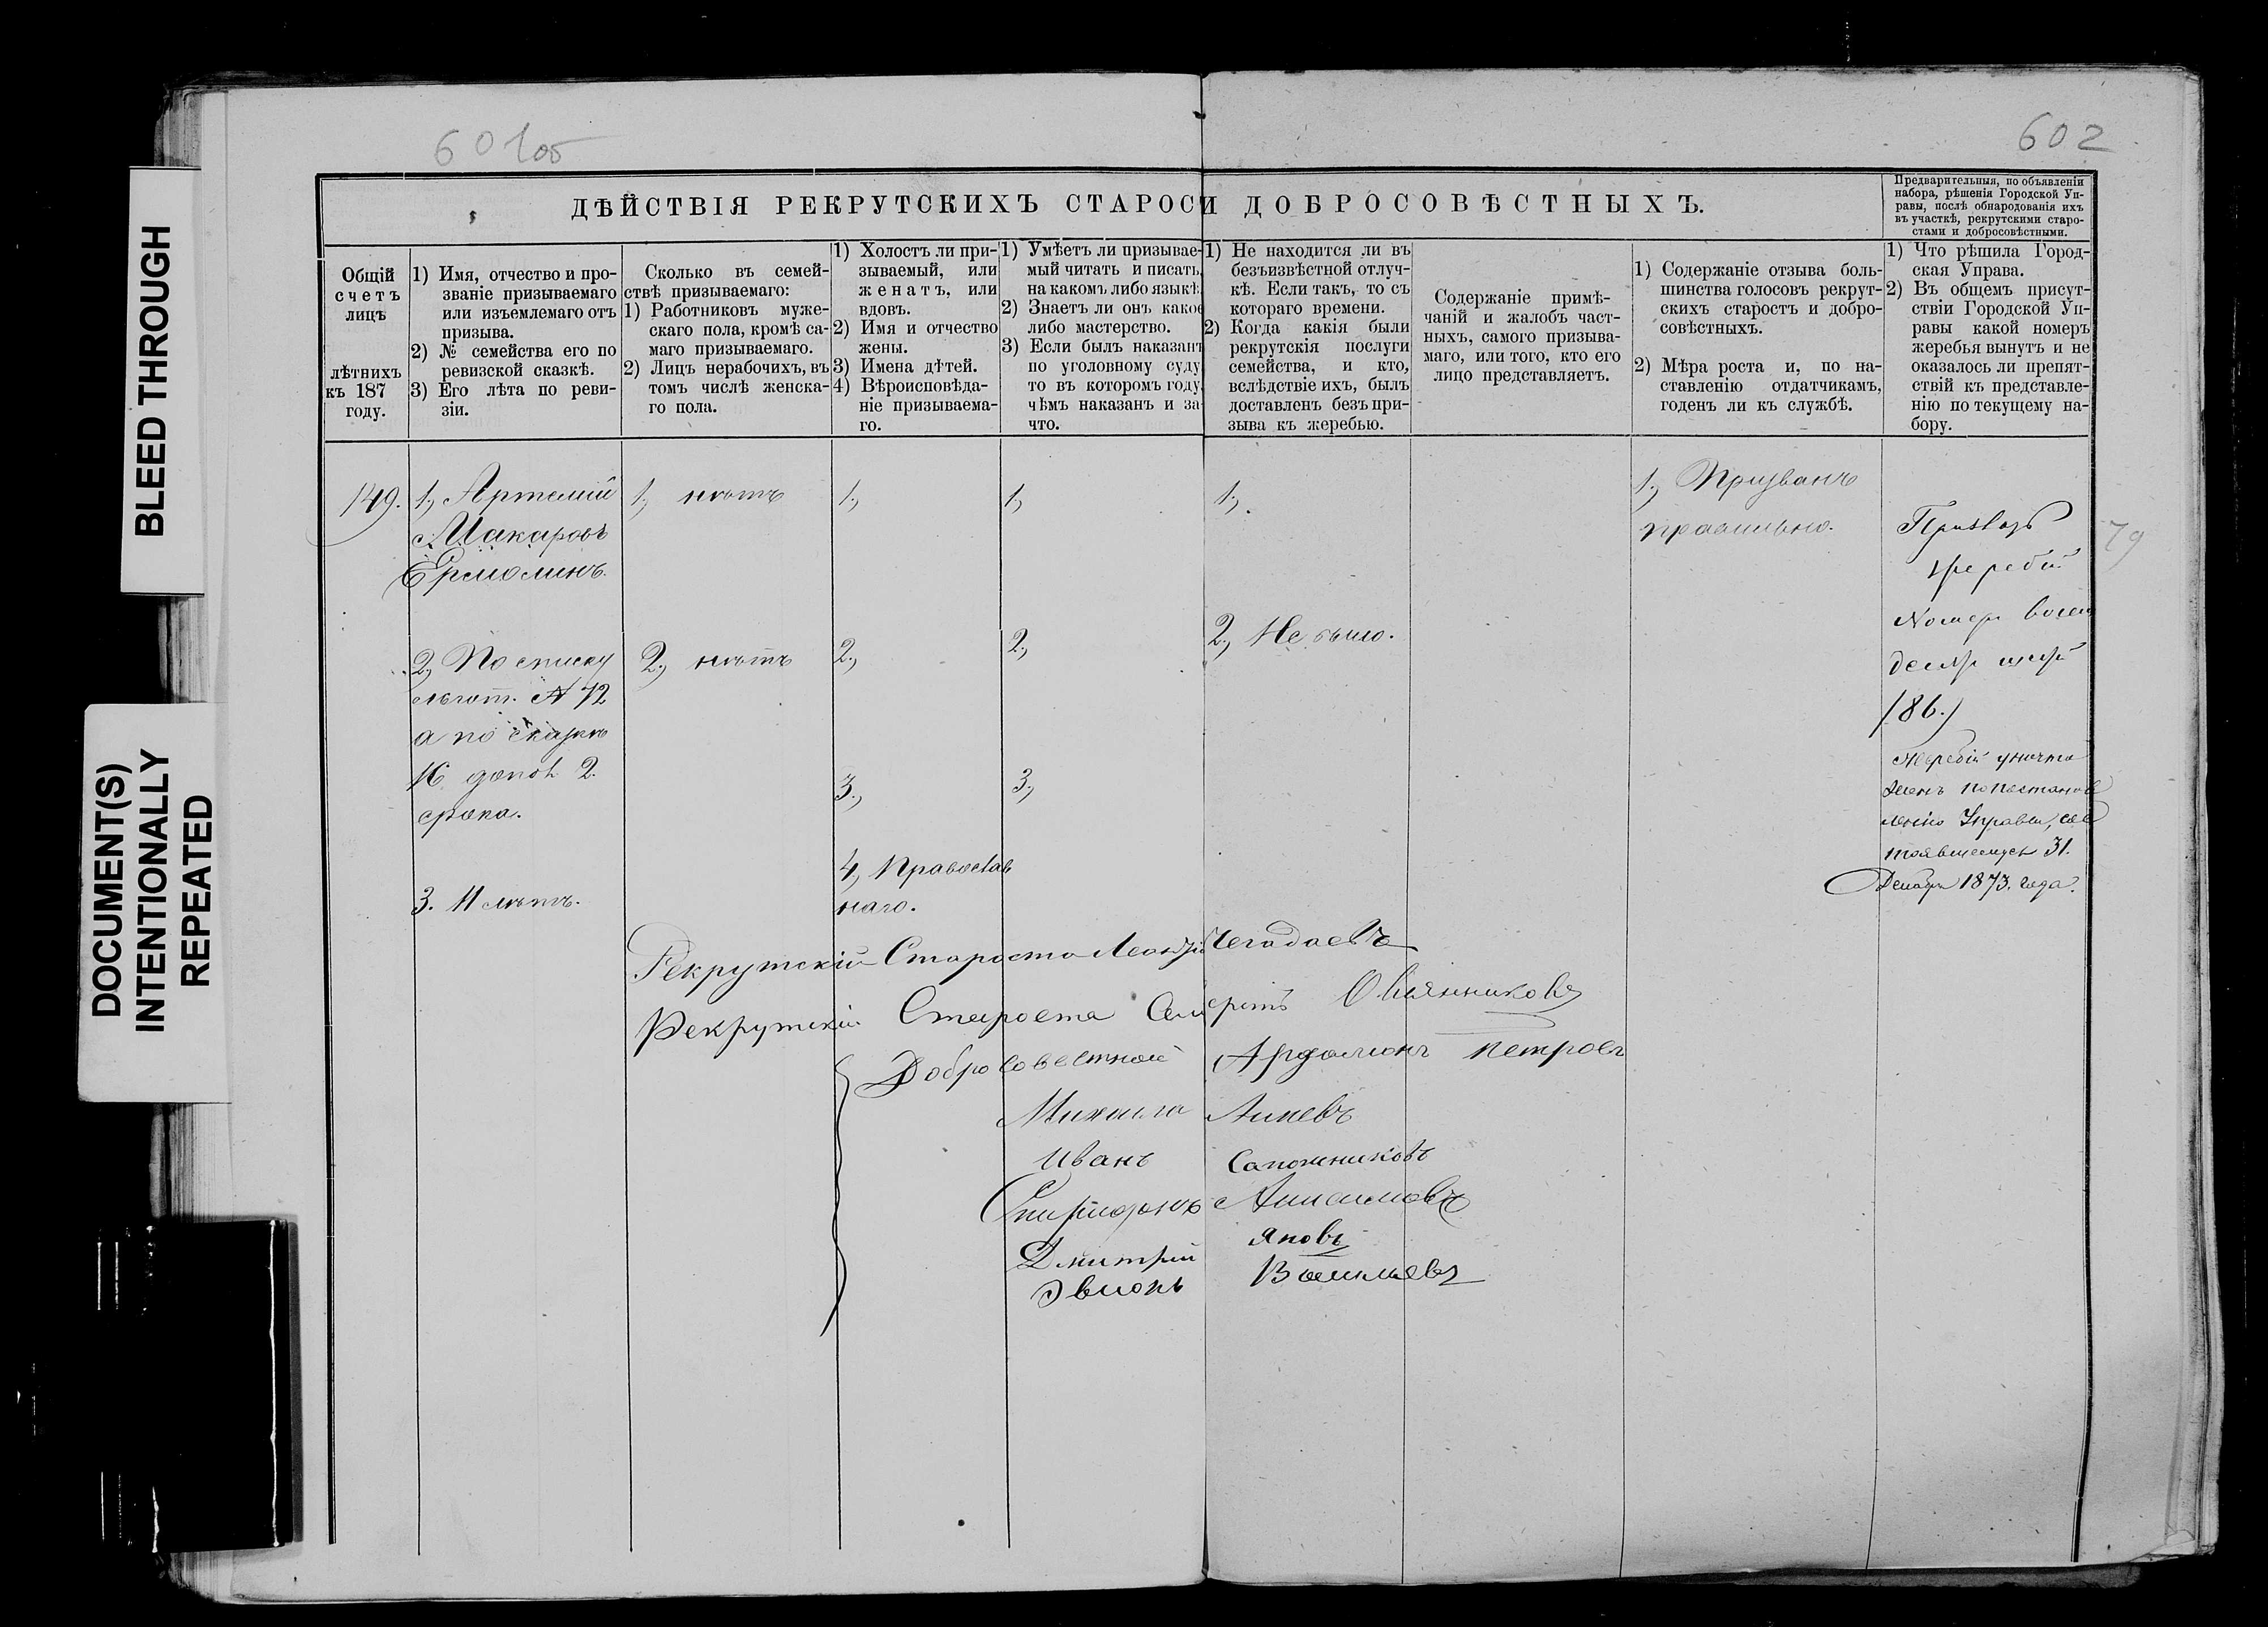 BLEED THROUGH
DOCUMENT(S)
INTENTIONALLY
REPEATED
601об
602
ДѢЙСТВІЯ РЕКРУТСКИХЪ СТАРОС И ДОБРОСОВѢСТНЫХЪ.
Предварительныя, по объявленіи
набора, рѣшенія Городской Уп-
равы, послѣ обнародованія ихъ
въ участкѣ, рекрутскими старо-
стами и добросовѣстными.
Общій
счетъ
лицъ
лѣтнихъ
къ 187
году.
1) Имя, отчество и про-
званіе призываемаго
или изъемлемаго отъ
призыва.
2) № семейства его по
ревизской сказкѣ.
3) Его лѣта по реви-
зіи.
Сколько въ семей-
ствѣ призываемаго:
1) Работниковъ муже-
скаго пола, кромѣ са-
маго призываемаго.
2) Лицъ нерабочихъ, въ
томъ числѣ женска-
го пола.
1) Холостъ ли при-
зываемый, или
женатъ, или
вдовъ.
2) Имя и отчество
жены.
3) Имена дѣтей.
4) Вѣроисповѣда-
ніе призываема-
го.
1) Умѣетъ ли призывае-
мый читать и писать,
на какомъ либо языкѣ.
2) Знаетъ ли онъ какое
либо мастерство.
3) Если былъ наказанъ
по уголовному суду
то въ которомъ году,
чѣмъ наказанъ и за
что.
1) Не находится ли въ
безъизвѣстной отлуч-
кѣ. Если такъ, то съ
котораго времени.
2) Когда какія были
рекрутскія послуги
семейства, и кто,
вслѣдствіе ихъ, былъ
доставленъ безъ при-
зыва къ жеребью.
Содержаніе примѣ-
чаній и жалобъ част-
ныхъ, самого призыва-
маго, или того, кто его
лицо представляетъ.
1) Содержаніе отзыва боль-
шинства голосовъ рекрут-
скихъ старостъ и добро-
совѣстныхъ.
2) Мѣра роста и, по на-
ставленію отдатчикамъ,
годенъ ли къ службѣ.
1) Что рѣшила Город-
ская Управа.
2) Въ общемъ присут-
ствіи Городской Уп-
равы какой номеръ
жеребья вынутъ и не
оказалось ли препят-
ствій къ представле-
нію по текущему на-
бору.
149.
1, Артемій
Макаровъ
Ермолинъ.
2, По списку
льгот. № 72
а по сказкѣ
16 допол 2.
срока.
3. 11 лѣтъ.
1, нѣтъ
2, нѣтъ
1,
2,
3,
4, Православ
наго.
1,
2,
3,
1,
2, Не было.
1, Призванъ
правильно.
жеребій
Номеръ восем
десят
/86./
79
Жеребій уничто
женъ по постанов
ленію Управы, сос
тоявшемуся 31.
Декабря 1873. года.
Рекрутскій Староста Чегодаевъ
Рекрутскій Староста Овсянниковъ
Добросовестной Ардалионъ Петровъ
Михаила Аникевъ
Иванъ Сапожниковъ
Спиридонъ Анисимовъ
Дмитрій Яковъ
Васильевъ